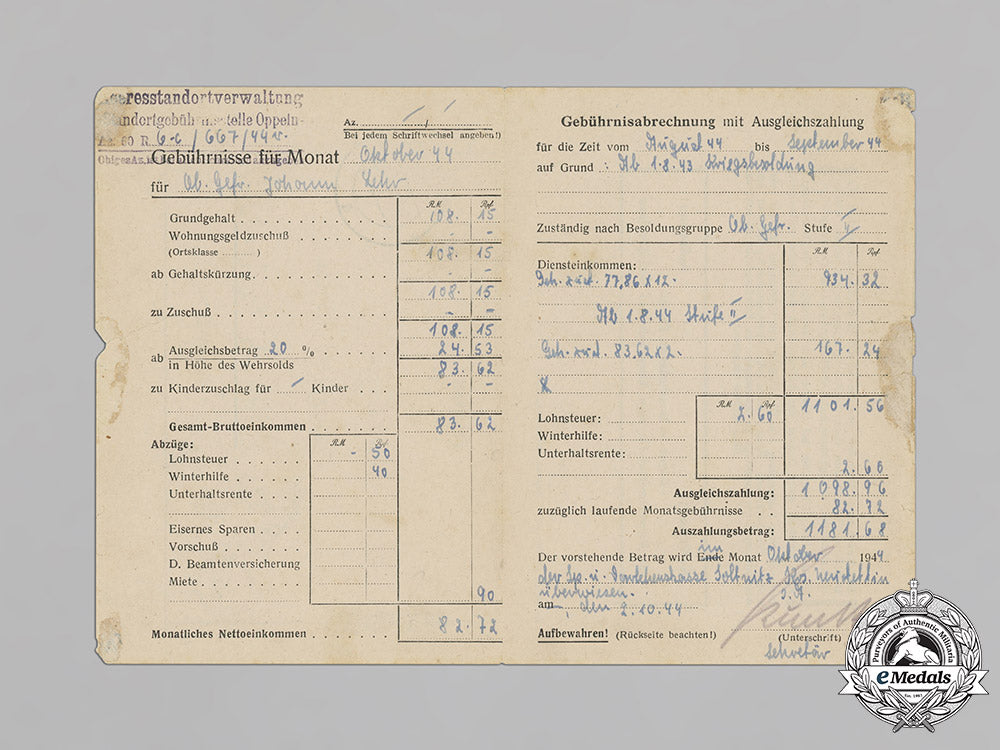 eresstandortverwaltung
andortgebüh telle Oppeln
Az. 60 R. 6-c / 667/44 v.
Az. / /
Bei jedem Schriftwechsel angeben!)
Gebührnisse für Monat Oktober 44
für Ob. Gefr. Johann Lehr
RM Rpf.
Grundgehalt 108. 15
Wohnungsgeldzuschuß - -
(Ortsklasse )
108. 15
ab Gehaltskürzung. - -
108. 15
zu Zuschuß - -
108. 15
ab Ausgleichsbetrag 20 % 24. 53
in Höhe des Wehrsolds
83. 62
zu Kinderzuschlag für / Kinder - -
Gesamt-Bruttoeinkommen 83. 62
Abzüge: RM Rpf.
Lohnsteuer - 50
Winterhilfe 40
Unterhaltsrente
Eisernes Sparen
Vorschuß
D. Beamtenversicherung
Miete
90
Monatliches Nettoeinkommen 82. 72
Gebührnisabrechnung mit Ausgleichszahlung
für die Zeit vom August 44 bis September 44
auf Grund : Ab 1.8.43 Kriegsbesoldung
Zuständig nach Besoldungsgruppe Ob. Gefr. Stufe II
RM Rpf.
Diensteinkommen:
Geh. 77,86 x 12. 934. 32
Ab 1.8.44 Stufe II
Geh. 83,62 x 2. 167. 24
RM Rpf.
1101. 56
Lohnsteuer: 2. 60
Winterhilfe:
Unterhaltsrente:
2. 60
Ausgleichszahlung: 1098. 96
zuzüglich laufende Monatsgebührnisse 82. 72
Auszahlungsbetrag: 1181. 68
Der vorstehende Betrag wird Ende im Monat Oktober 1944
der Sp. u. Darlehenskasse
überwiesen. I. A.
am den 2.10.44
Aufbewahren! (Rückseite beachten!)
(Unterschrift)
Sekretär
Purveyors of Authentic Militaria
eMedals